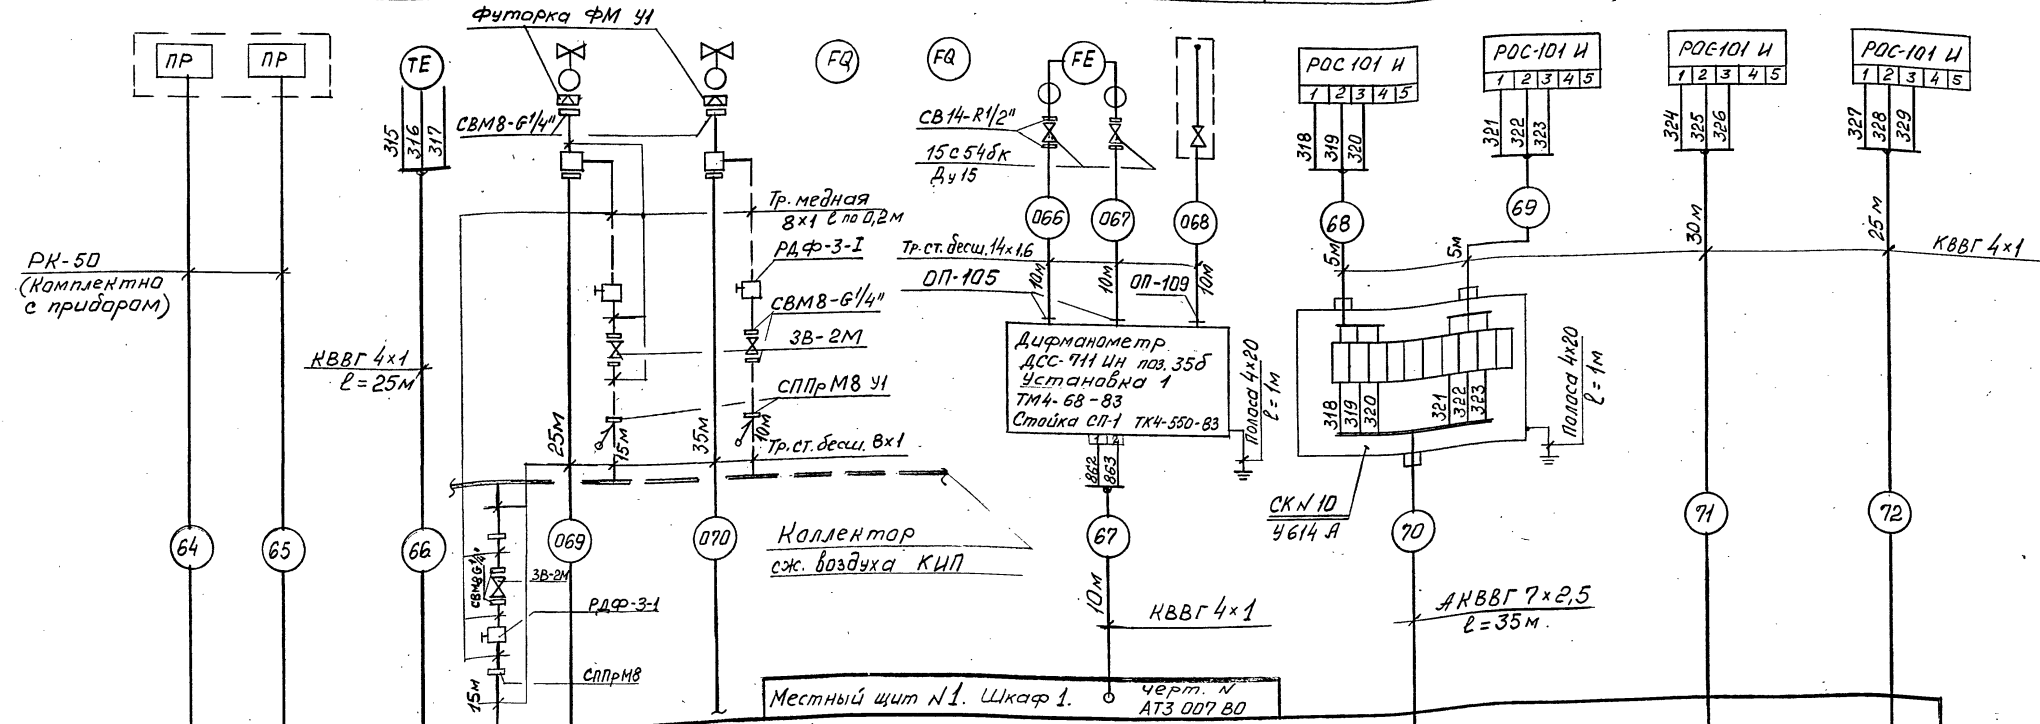 Футорка ФМ У1
ПР
ПР
ТЕ
FQ
FQ
FE
РОС 101 И
1 2 3 4 5
РОС-101 И
1 2 3 4 5
РОС-101 И
1 2 3 4 5
РОС-101 И
1 2 3 4 5
315
316
317
СВМ8-G1/4"
СВ14-R1/2"
15с54бк
Ду15
318
319
320
321
322
323
324
325
326
327
328
329
Тр. медная
8х1 ℓ по 0,2м
РДФ-3-I
СВМ8-G1/4"
ЗВ-2М
СППрМ8 У1
Тр. ст. бесш. 8х1
066
067
068
68
69
Тр. ст. бесш. 14х1,6
ОП-105
ОП-109
10м
10м
10м
5м
5м
30м
25м
КВВГ 4х1
РК-50
(Комплектно
с прибором)
КВВГ 4х1
ℓ=25м
Дифманометр
ДСС-711 Ин поз. 35б
Установка 1
ТМ4-68-83
Стойка СП-1 ТК4-550-83
1 2
862
863
Полоса 4х20
ℓ=1м
318
319
320
321
322
323
Полоса 4х20
ℓ=1м
25м
15м
35м
10м
СК N 10
У614 А
64
65
66
069
070
67
70
71
72
Коллектор
сж. воздуха КИП
СВМ8G1/4"
ЗВ-2М
РДФ-3-1
СППрМ8
15м
10м
КВВГ 4х1
АКВВГ 7х2,5
ℓ=35м.
Местный щит N1. Шкаф 1.
черт. N
АТЗ 007 ВО